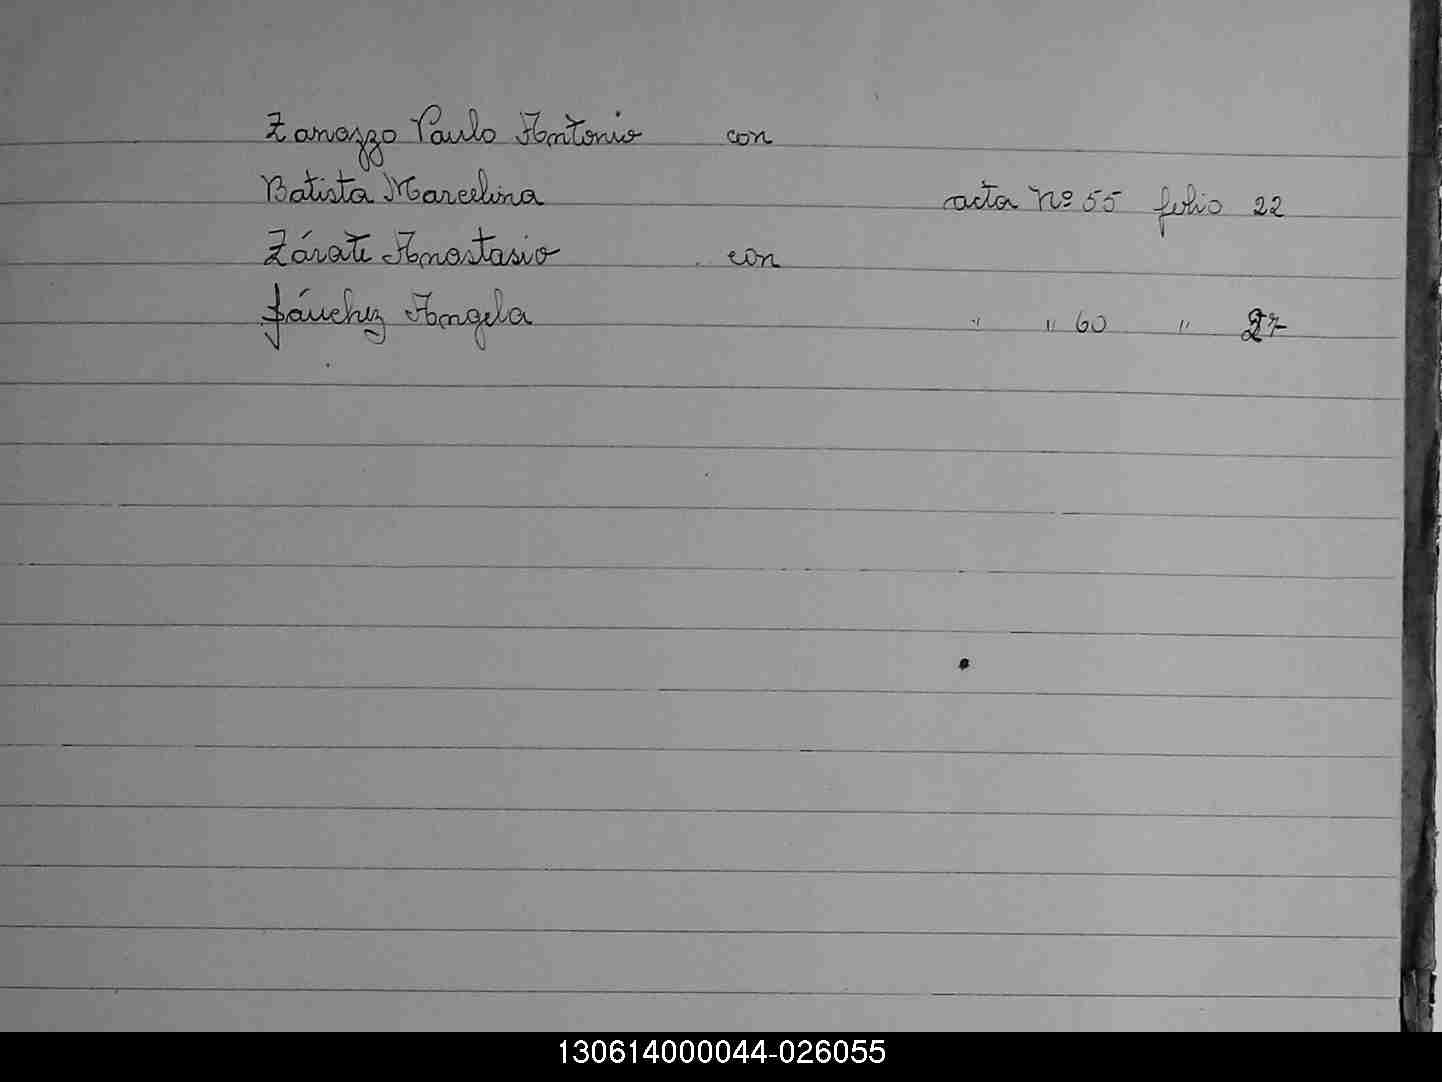 Zanazzo Paulo Antonio con
Batista Marcelina acta Nº 55 folio 22
Zárate Anastasio con
Sánchez Angela " " 60 " 27
130614000044-026055